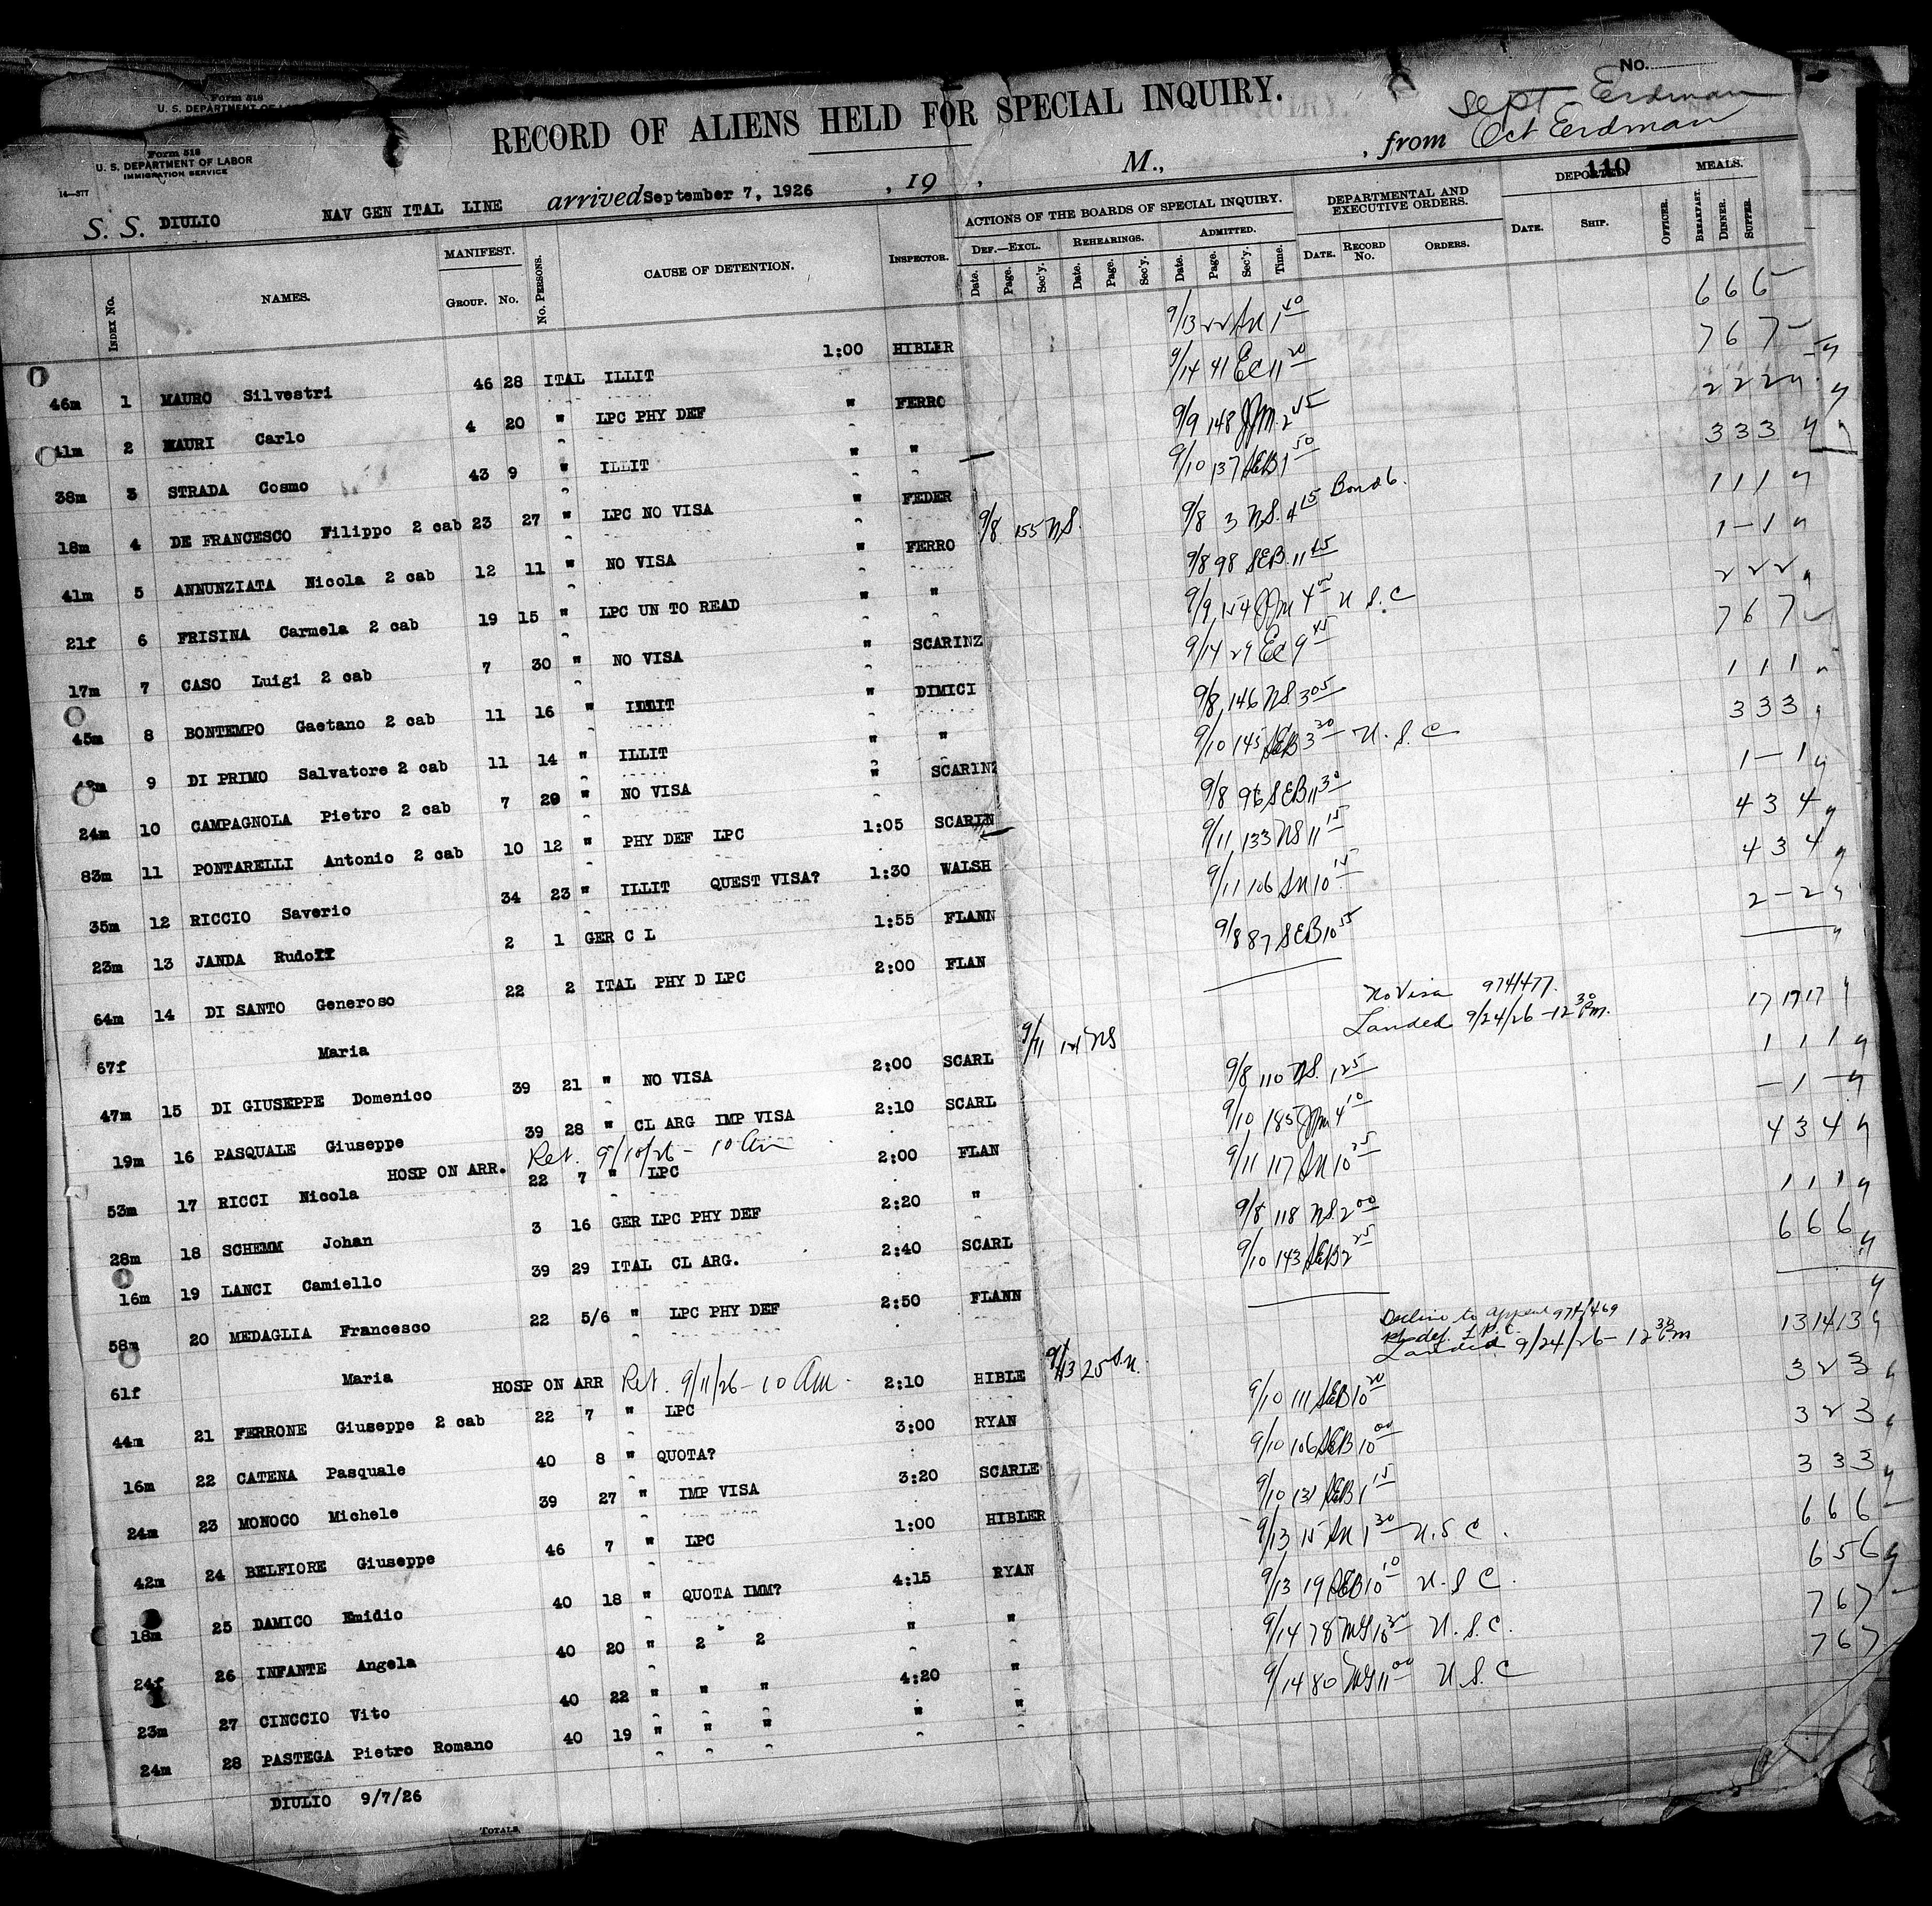 No.
Form 518
U. S. DEPARTMENT OF LA
Sept Erdman
RECORD OF ALIENS HELD FOR SPECIAL INQUIRY.
Form 518
U. S. DEPARTMENT OF LABOR
IMMIGRATION SERVICE
14—377
M., , from Oct Erdman
110
S. S. DIULIO NAV GEN ITAL LINE arrived September 7, 1926 , 19 ,
ACTIONS OF THE BOARDS OF SPECIAL INQUIRY. DEPARTMENTAL AND EXECUTIVE ORDERS. DEPORTED. MEALS.
INDEX No. NAMES. MANIFEST. GROUP. No. No. PERSONS. CAUSE OF DETENTION. INSPECTOR. DEF.—EXCL. Date. Page. Sec'y. REHEARINGS. Date. Page. Sec'y. ADMITTED. Date. Page. Sec'y. Time. DATE. RECORD No. ORDERS. DATE. SHIP. OFFICER. BREAKFAST. DINNER. SUPPER.
46m 1 MAURO Silvestri 46 28 ITAL ILLIT 1:00 HIBLER 9/13 22 1 40 6 6 6
41m 2 MAURI Carlo 4 20 " LPC PHY DEF " FERRO 9/14 41 EC 11 20 7 6 7
38m 3 STRADA Cosmo 43 9 " ILLIT " " 9/9 148 2 45 2 2 2
18m 4 DE FRANCESCO Filippo 2 cab 23 27 " LPC NO VISA " FEDER 9/10 137 SEB 1 50 3 3 3
41m 5 ANNUNZIATA Nicola 2 cab 12 11 " NO VISA " FERRO 9/8 155 NS. 9/8 3 NS. 4 15 Bond 6. 1 1 1
21f 6 FRISINA Carmela 2 cab 19 15 " LPC UN TO READ " " 9/8 98 SEB 11 45 1 – 1
17m 7 CASO Luigi 2 cab 7 30 " NO VISA " SCARINZ 9/9 154 4 00 U S. C 2 2 2
45m 8 BONTEMPO Gaetano 2 cab 11 16 " ILLIT " DIMICI 9/14 29 EC 9 45 7 6 7
9 DI PRIMO Salvatore 2 cab 11 14 " ILLIT " " 9/8 146 NS. 3 05 1 1 1
24m 10 CAMPAGNOLA Pietro 2 cab 7 29 " NO VISA " SCARINZ 9/10 145 SEB 3 30 U. S. C 3 3 3
83m 11 PONTARELLI Antonio 2 cab 10 12 " PHY DEF LPC 1:05 SCARIN 9/8 96 SEB 11 30 1 – 1
35m 12 RICCIO Saverio 34 23 " ILLIT QUEST VISA? 1:30 WALSH 9/11 133 NS 11 15 4 3 4
23m 13 JANDA Rudolf 2 1 GER C L 1:55 FLANN 9/11 106 10 15 4 3 4
64m 14 DI SANTO Generoso 22 2 ITAL PHY D LPC 2:00 FLAN 9/8 87 SEB 10 55 2 – 2
67f Maria
47m 15 DI GIUSEPPE Domenico 39 21 " NO VISA 2:00 SCARL 9/11 NS No Visa 974/477. Landed 9/24/26 – 12 30 Pm. 17 17 17
19m 16 PASQUALE Giuseppe 39 28 " CL ARG IMP VISA 2:10 SCARL 9/8 110 NS. 1 25 1 1 1
HOSP ON ARR. Ret. 9/10/26 – 10 Am
53m 17 RICCI Nicola 22 7 " LPC 2:00 FLAN 9/10 185 4 10 – 1 –
28m 18 SCHEMM Johan 3 16 GER LPC PHY DEF 2:20 " 9/11 117 10 25 4 3 4
16m 19 LANCI Camiello 39 29 ITAL CL ARG. 2:40 SCARL 9/8 118 NS. 2 00 1 1 1
58m 20 MEDAGLIA Francesco 22 5/6 " LPC PHY DEF 2:50 FLANN 9/10 143 SEB 2 25 6 6 6
61f Maria
HOSP ON ARR Ret. 9/11/26 – 10 Am.
44m 21 FERRONE Giuseppe 2 cab 22 7 " LPC 2:10 HIBLE 9/13 25 Decline to appeal 974/469 Phy def. L.P.C. Landed 9/24/26 – 12 30 Pm 13 14 13
16m 22 CATENA Pasquale 40 8 " QUOTA? 3:00 RYAN 9/10 111 SEB 10 20 3 2 3
24m 23 MONOCO Michele 39 27 " IMP VISA 3:20 SCARLE 9/10 106 SEB 10 00 3 2 3
42m 24 BELFIORE Giuseppe 46 7 " LPC 1:00 HIBLER 9/10 131 SEB 1 15 3 3 3
18m 25 DAMICO Emidio 40 18 " QUOTA IMM? 4:15 RYAN 9/13 15 1 30 U. S C. 6 6 6
24f 26 INFANTE Angela 40 20 " 2 2 " " 9/13 19 SEB 10 10 U. S C. 6 5 6
23m 27 CINCCIO Vito 40 22 " " " 4:20 " 9/14 78 10 30 U. S. C. 7 6 7
24m 28 PASTEGA Pietro Romano 40 19 " " " " " 9/14 80 11 00 U. S. C 7 6 7
DIULIO 9/7/26
TOTALS